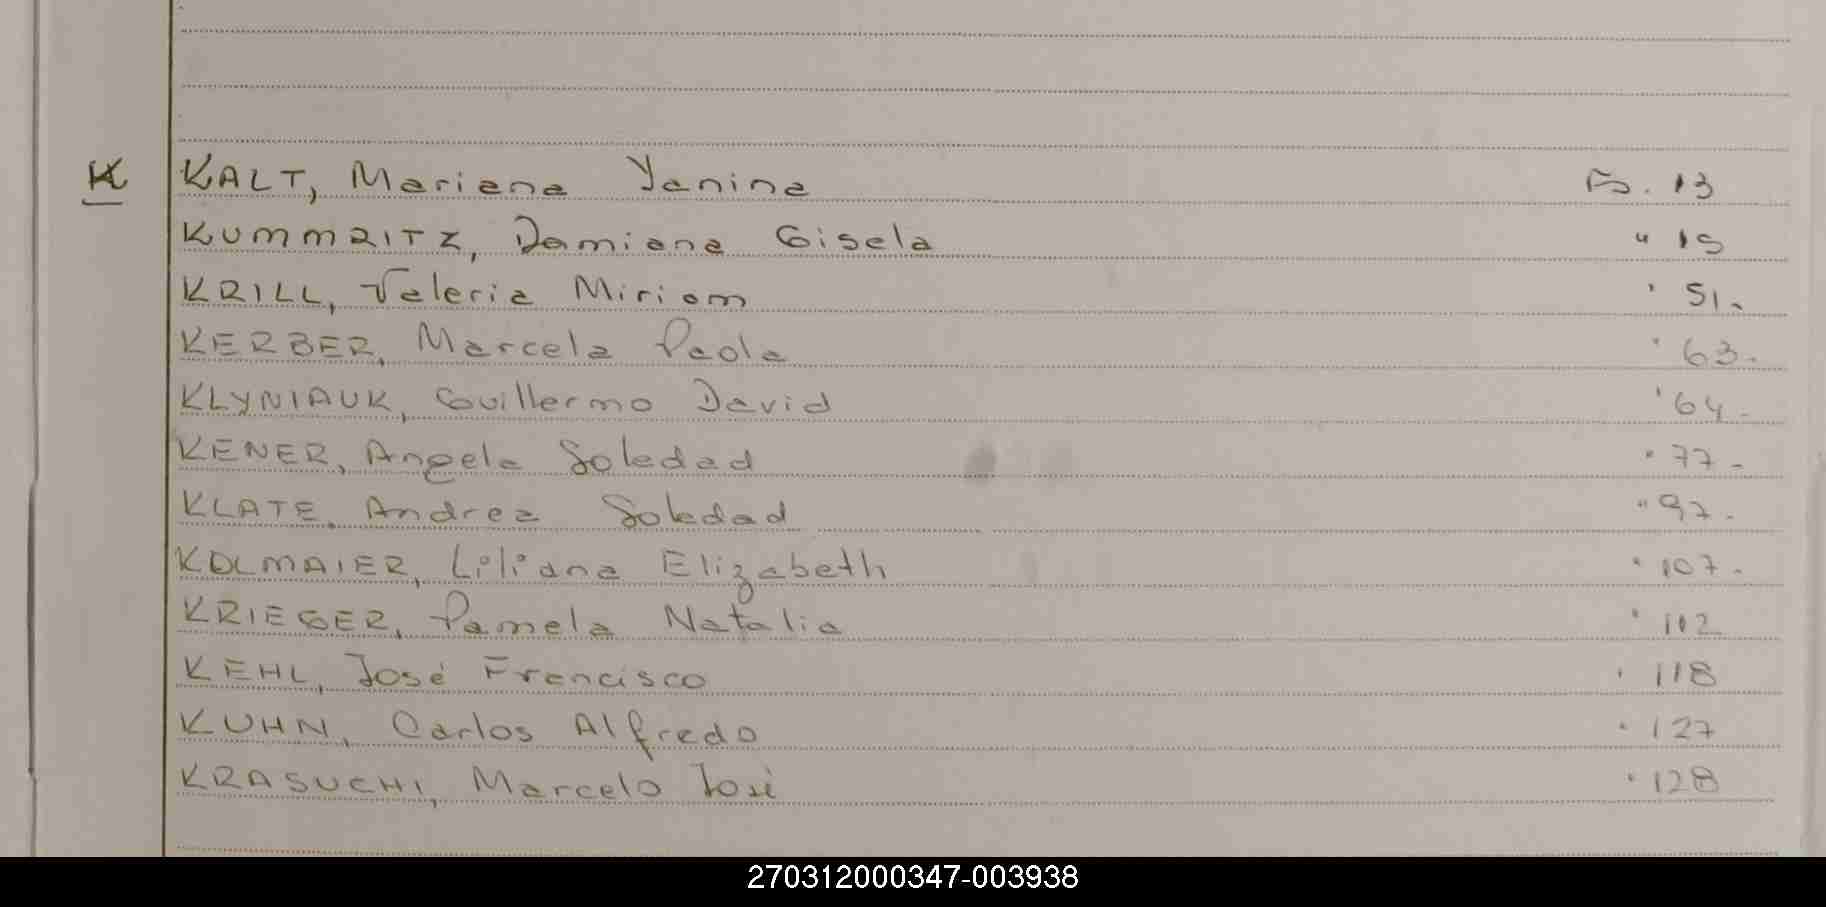 K KALT, Mariana Yanina Fs. 13
KUMMRITZ, Damiana Gisela " 15
KRILL, Valeria Miriam " 51.
KERBER, Marcela Paola " 63.
KLYNIAUK, Guillermo David " 64.
KENER, Angela Soledad " 77.
KLATE, Andrea Soledad " 97.
KOLMAIER, Liliana Elizabeth " 107.
KRIEGER, Pamela Natalia " 112
KEHL, José Francisco " 118
KUHN, Carlos Alfredo " 127
KRASUCHI, Marcelo José " 128
270312000347-003938